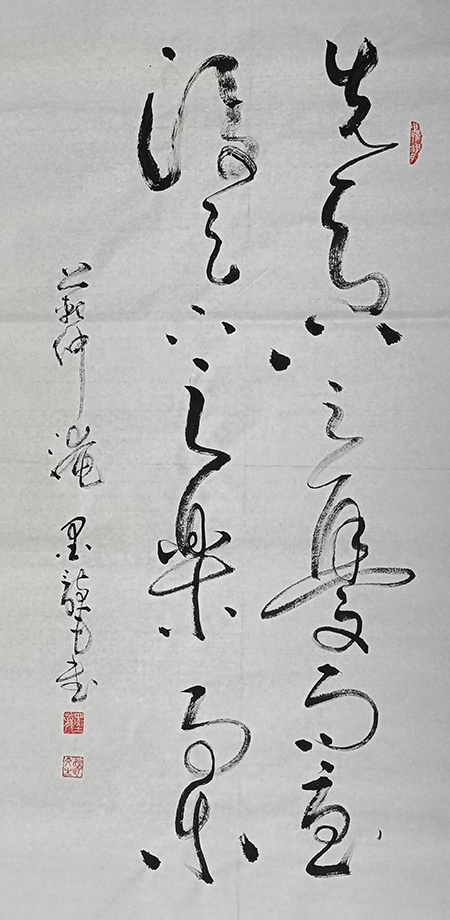 先天下之憂而憂
後天下之樂而樂
仲 墨 書